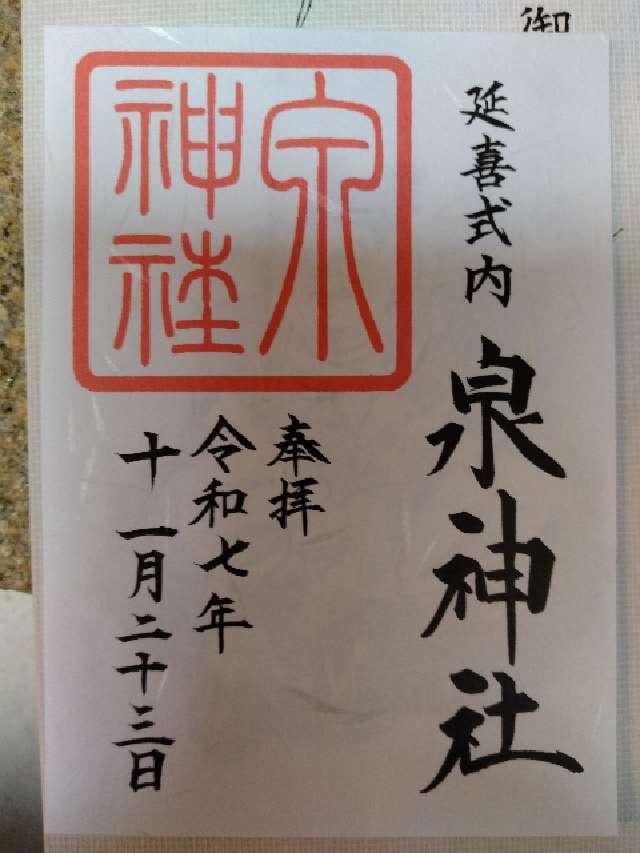 御
延喜式内
泉神社
奉拝
令和七年
十一月二十三日
泉
神社